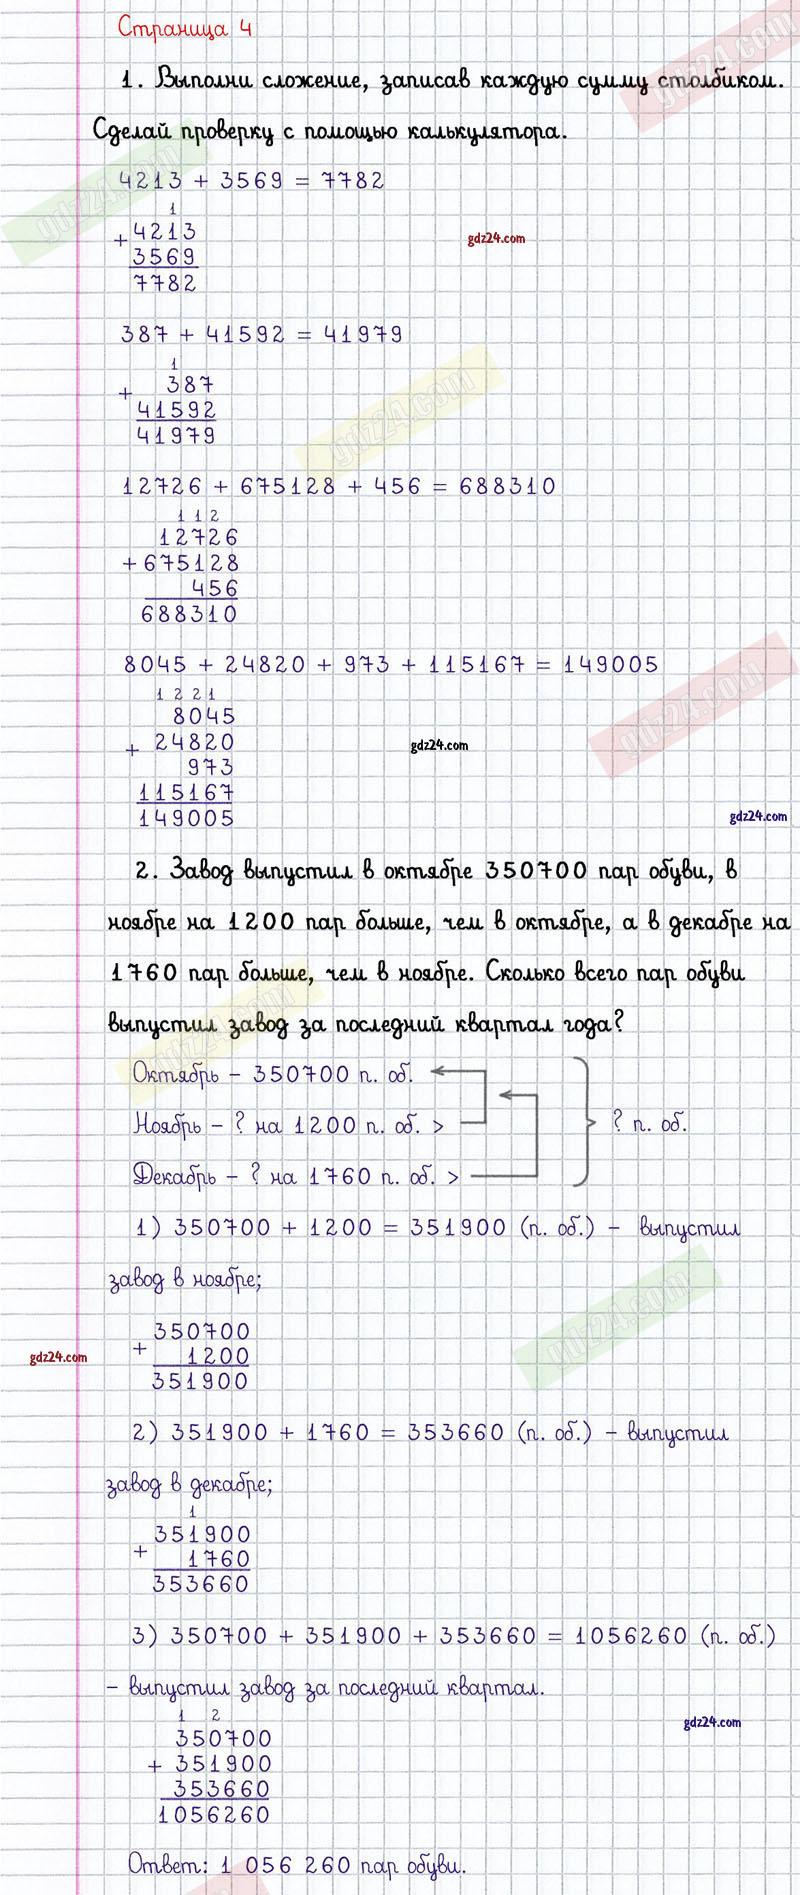 Страница 4
gdz24.com
1. Выполни сложение, записав каждую сумму столбиком.
Сделай проверку с помощью калькулятора.
gdz24.com
4213 + 3569 = 7782
1
+ 4213
3569
7782
gdz24.com
387 + 41592 = 41979
1
+ 387
41592
41979
gdz24.com
12726 + 675128 + 456 = 688310
1 1 2
12726
+ 675128
456
688310
8045 + 24820 + 973 + 115167 = 149005
1 2 2 1
8045
+ 24820
973
115167
149005
gdz24.com
gdz24.com
gdz24.com
2. Завод выпустил в октябре 350700 пар обуви, в
ноябре на 1200 пар больше, чем в октябре, а в декабре на
1760 пар больше, чем в ноябре. Сколько всего пар обуви
выпустил завод за последний квартал года?
gdz24.com
Октябрь – 350700 п. об.
Ноябрь – ? на 1200 п. об. > ? п. об.
Декабрь – ? на 1760 п. об. >
1) 350700 + 1200 = 351900 (п. об.) – выпустил
завод в ноябре;
gdz24.com
+ 350700
1200
351900
gdz24.com
2) 351900 + 1760 = 353660 (п. об.) – выпустил
завод в декабре;
1
+ 351900
1760
353660
3) 350700 + 351900 + 353660 = 1056260 (п. об.)
– выпустил завод за последний квартал.
gdz24.com
1 2
350700
+ 351900
353660
1056260
Ответ: 1 056 260 пар обуви.